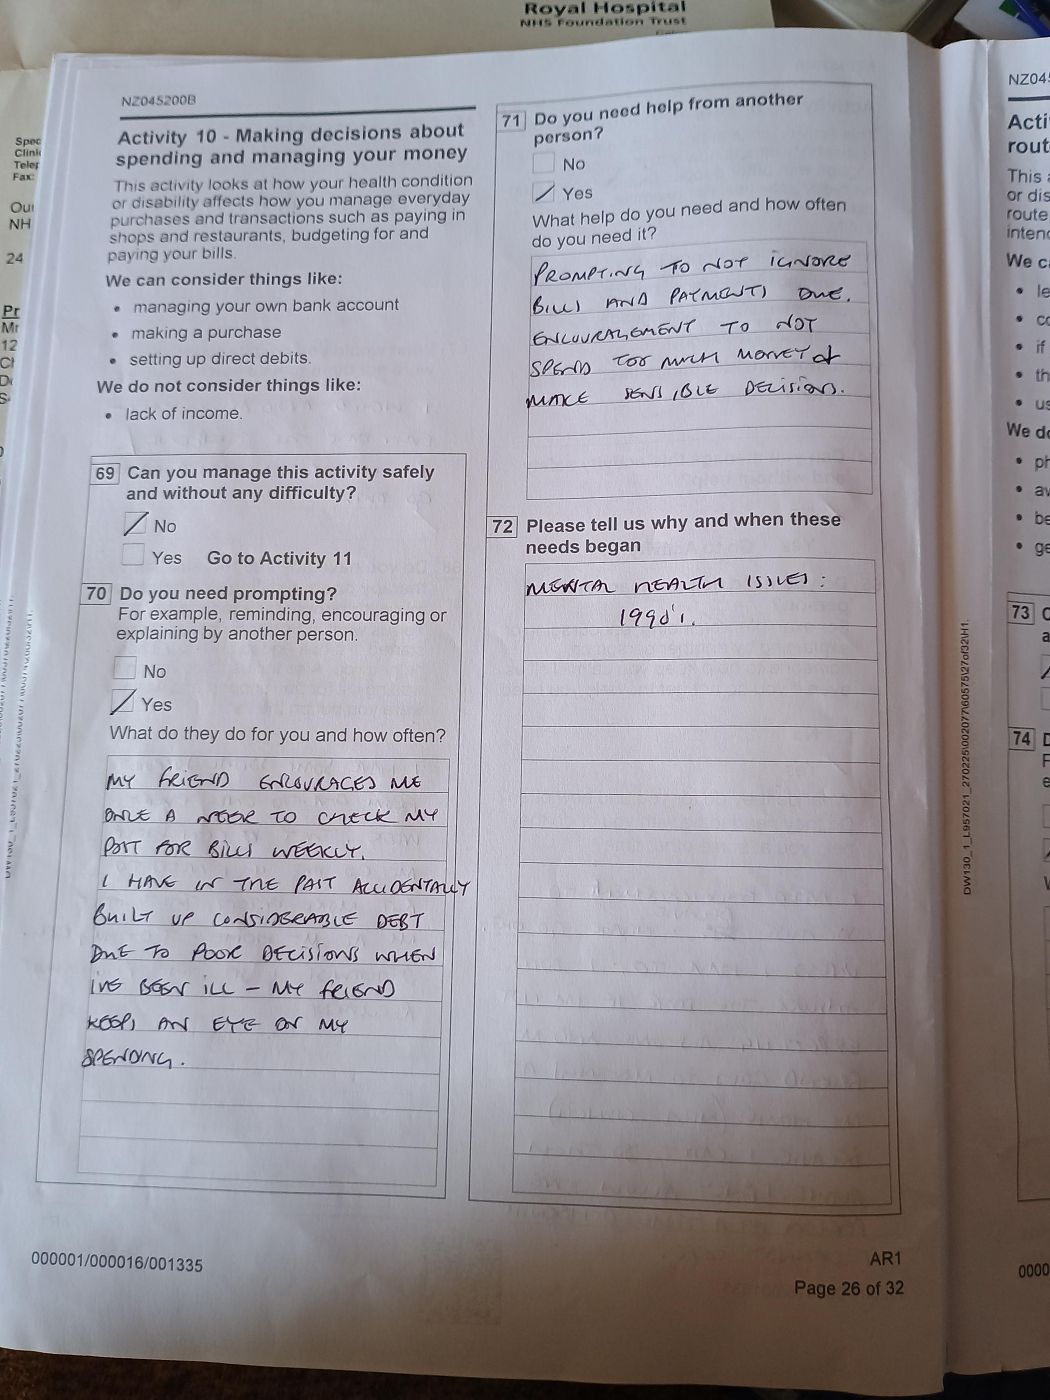 Royal Hospital
NHS Foundation Trust
Spec
Clini
Telep
Fax:
Our
NH
24
Pr
Mr
12
NZ045200B
Activity 10 - Making decisions about
spending and managing your money
This activity looks at how your health condition
or disability affects how you manage everyday
purchases and transactions such as paying in
shops and restaurants, budgeting for and
paying your bills.
We can consider things like:
• managing your own bank account
• making a purchase
• setting up direct debits.
We do not consider things like:
• lack of income.
69 Can you manage this activity safely
and without any difficulty?
No
Yes Go to Activity 11
70 Do you need prompting?
For example, reminding, encouraging or
explaining by another person.
No
Yes
What do they do for you and how often?
MY FRIEND ENCOURAGES ME
ONCE A WEEK TO CHECK MY
POST FOR BILLS WEEKLY.
I HAVE IN THE PAST ACCIDENTALLY
BUILT UP CONSIDERABLE DEBT
DUE TO POOR DECISIONS WHEN
IVE BEEN ILL - MY FRIEND
KEEPS AN EYE ON MY
SPENDING.
000001/000016/001335
71 Do you need help from another
person?
No
Yes
What help do you need and how often
do you need it?
PROMPTING TO NOT IGNORE
BILLS AND PAYMENTS DUE.
ENCOURAGEMENT TO NOT
SPEND TOO MUCH MONEY &
MAKE SENSIBLE DECISIONS.
72 Please tell us why and when these
needs began
MENTAL HEALTH ISSUES:
1990's.
AR1
Page 26 of 32
DW130_1_L957021_270225\002077\60575\27of32\H1.
NZ045
Acti
rout
This a
or dis
route
intend
We ca
• le
• co
• if
• th
• us
We do
• ph
• av
• be
• ge
73
74
0000